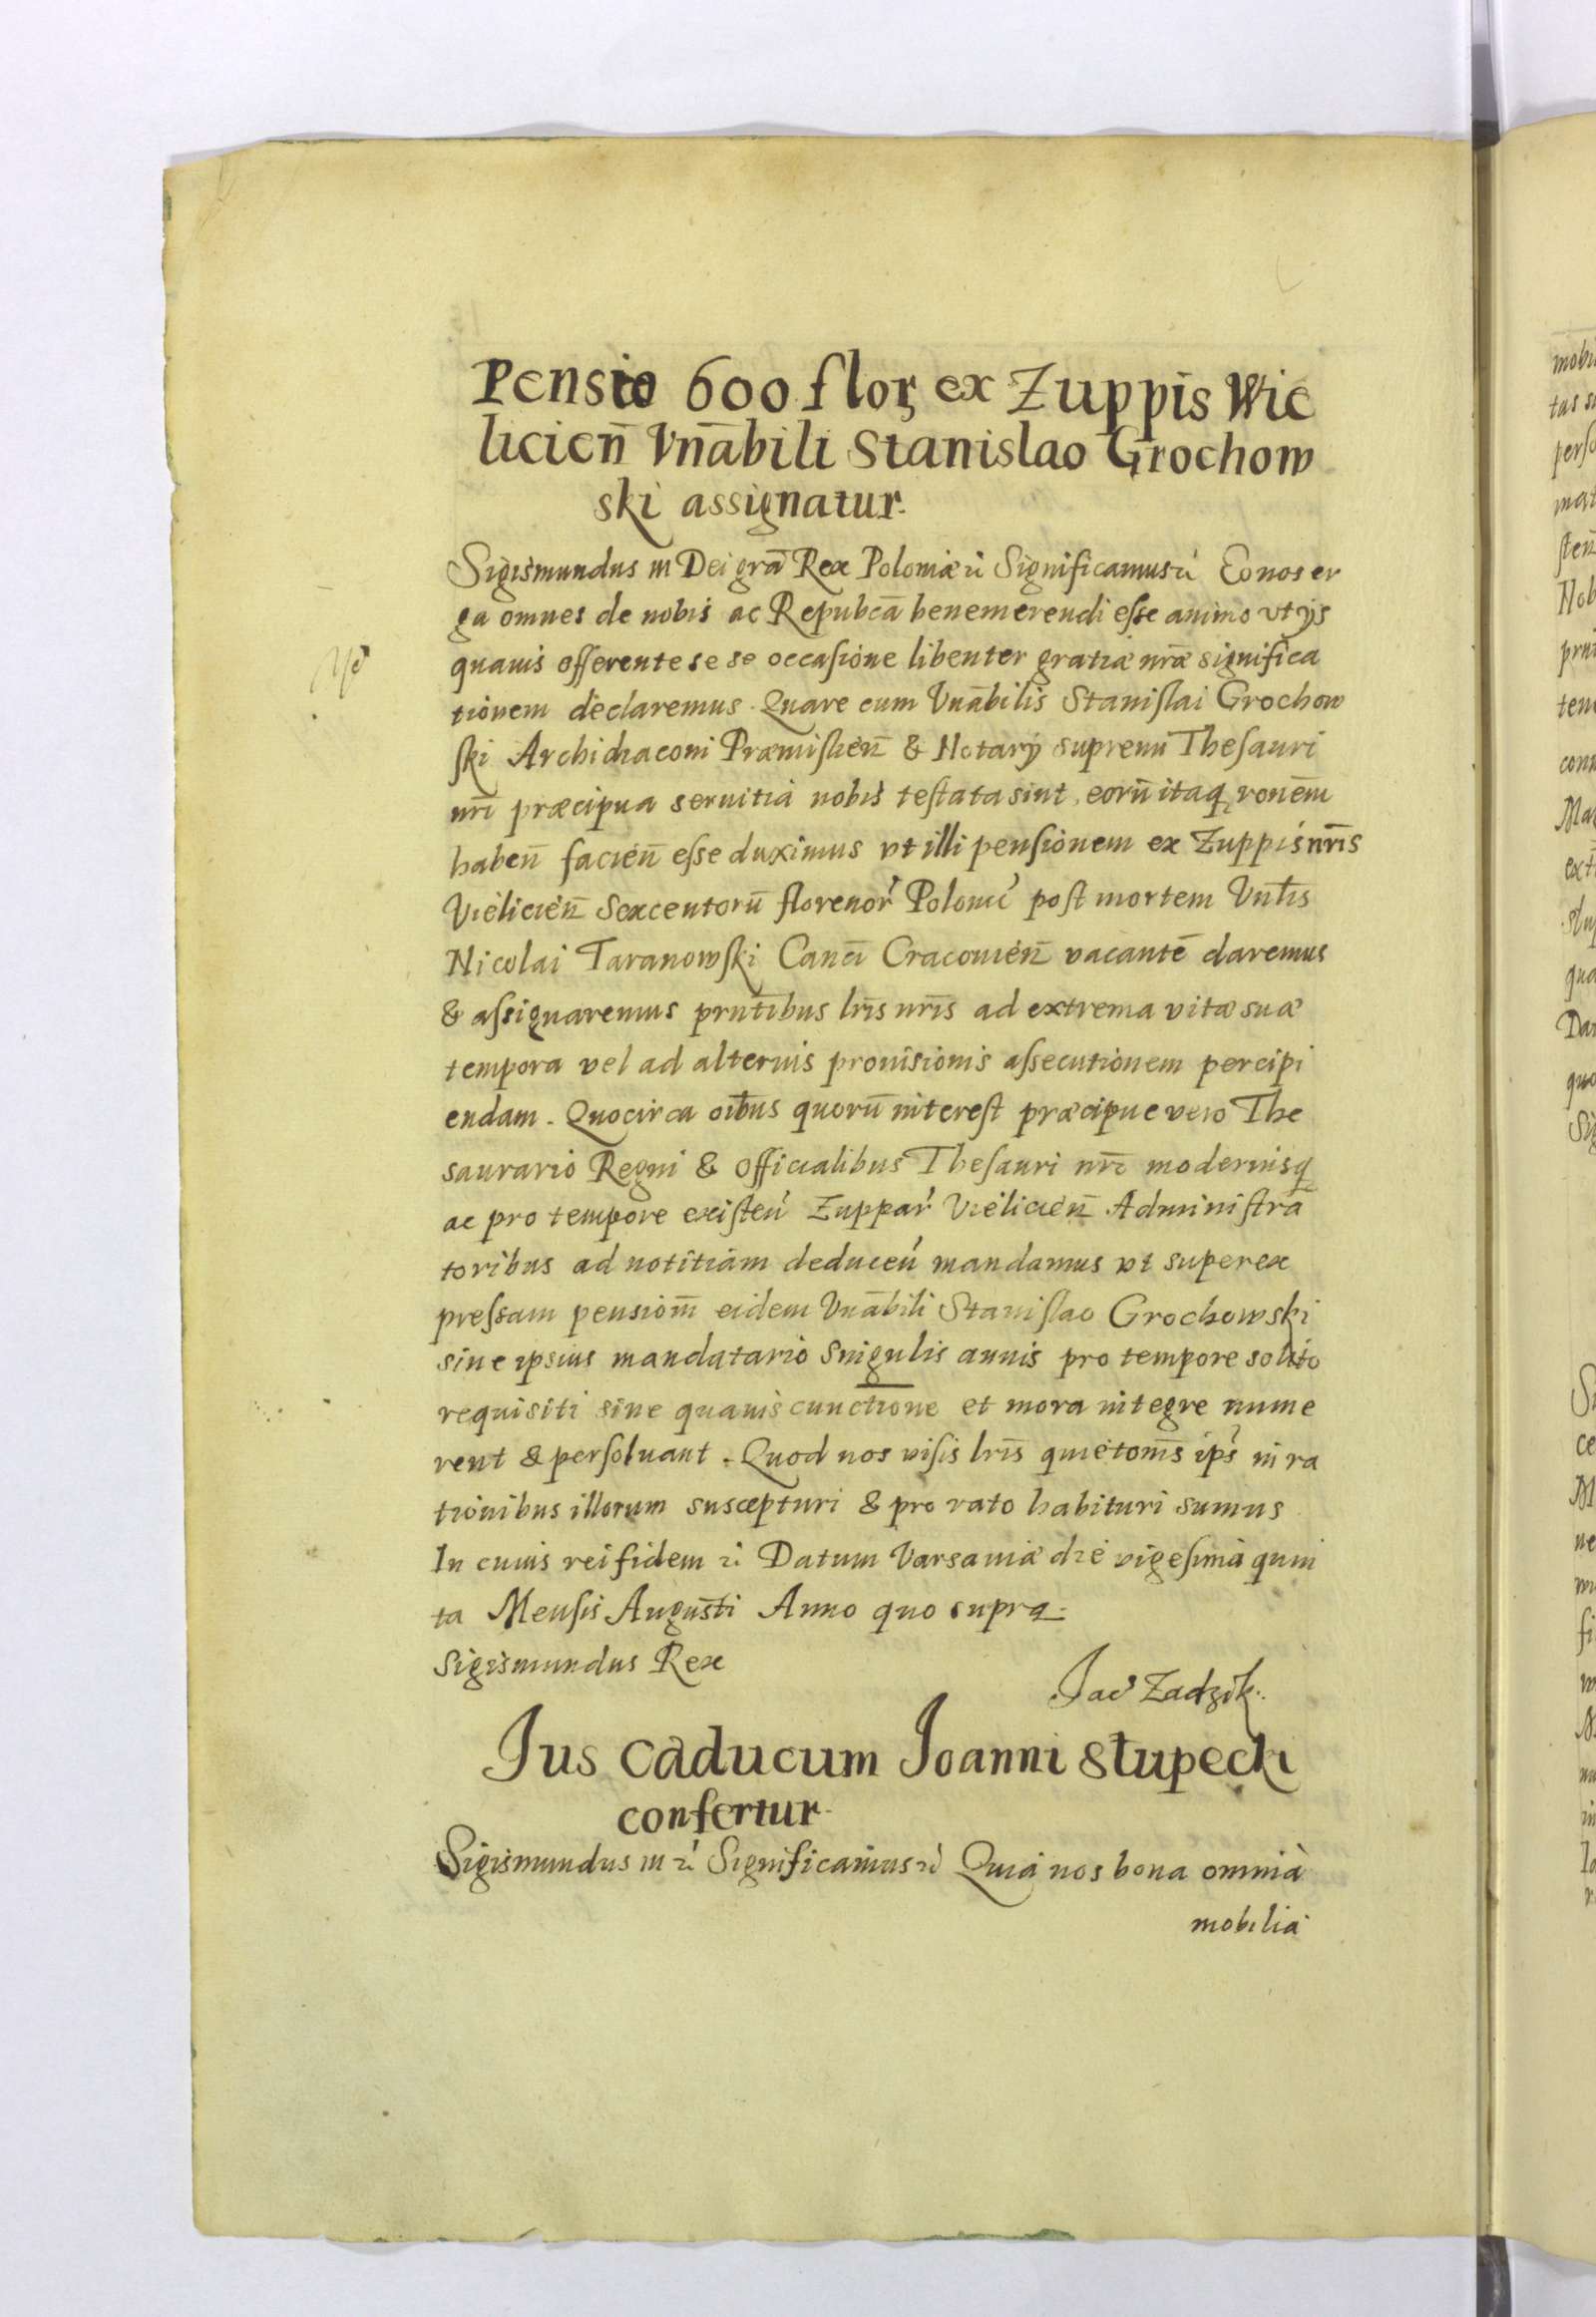 Pensio 600 floꝝ ex Zuppis Wie
licien̄ Vn̄abili Stanislao Grochow
ski assignatur.
Sigismundus III Dei grā Rex Poloniæ ꝛć Significamus ꝛć Eo nos er
ga omnes de nobis ac Repubcā benemerendi esse animo vt ijs
quauis offerente se se occasione libenter gratiæ nr̄æ significa
tionem declaremus. Quare cum Vnābilis Stanislai Grochow
ski Archidiaconi Præmislien̄ & Notarij supremi Thesauri
nr̄i præcipua seruitia nobis testata sint, eorū itaqꝫ ronēm
haben̄ facien̄ esse duximus vt illi pensionem ex Zuppis nr̄is
Vielicien̄ Sexcentorū florenor̄ Polonić post mortem Vnl̄is
Nicolai Taranowski Canci Cracouien̄ vacantē daremus
& assignaremus prn̄tibus lr̄is nr̄is ad extrema vitæ suæ
tempora vel ad alterius prouisionis assecutionem percipi
endam. Quocirca oībus quorū interest præcipue vero The
saurario Regni & Officialibus Thesauri nr̄i modernisqꝫ
ac pro tempore existeń Zuppar̄ Vielicien̄ Administra
toribus ad notitiam deduceń mandamus vt superex
pressam pensiom̄ eidem Vnābili Stanislao Grochowski
siue ipsius mandatario Singulis annis pro tempore solito
requisiti sine quauis cunctione et mora integre nume
rent & persoluant. Quod nos visis lr̄is quietom̄s ips̄ in ra
tionibus illorum suscepturi & pro rato habituri sumus
In cuius rei fidem ꝛć Datum Varsauiæ die vigesima quin
ta Mensis Augusti Anno quo supra.
Sigismundus Rex
Jać Zadzik.
Jus caducum Joanni Słupecki
confertur.
Sigismundus III ꝛć Significamus ꝛć Quia nos bona omnia
mobilia